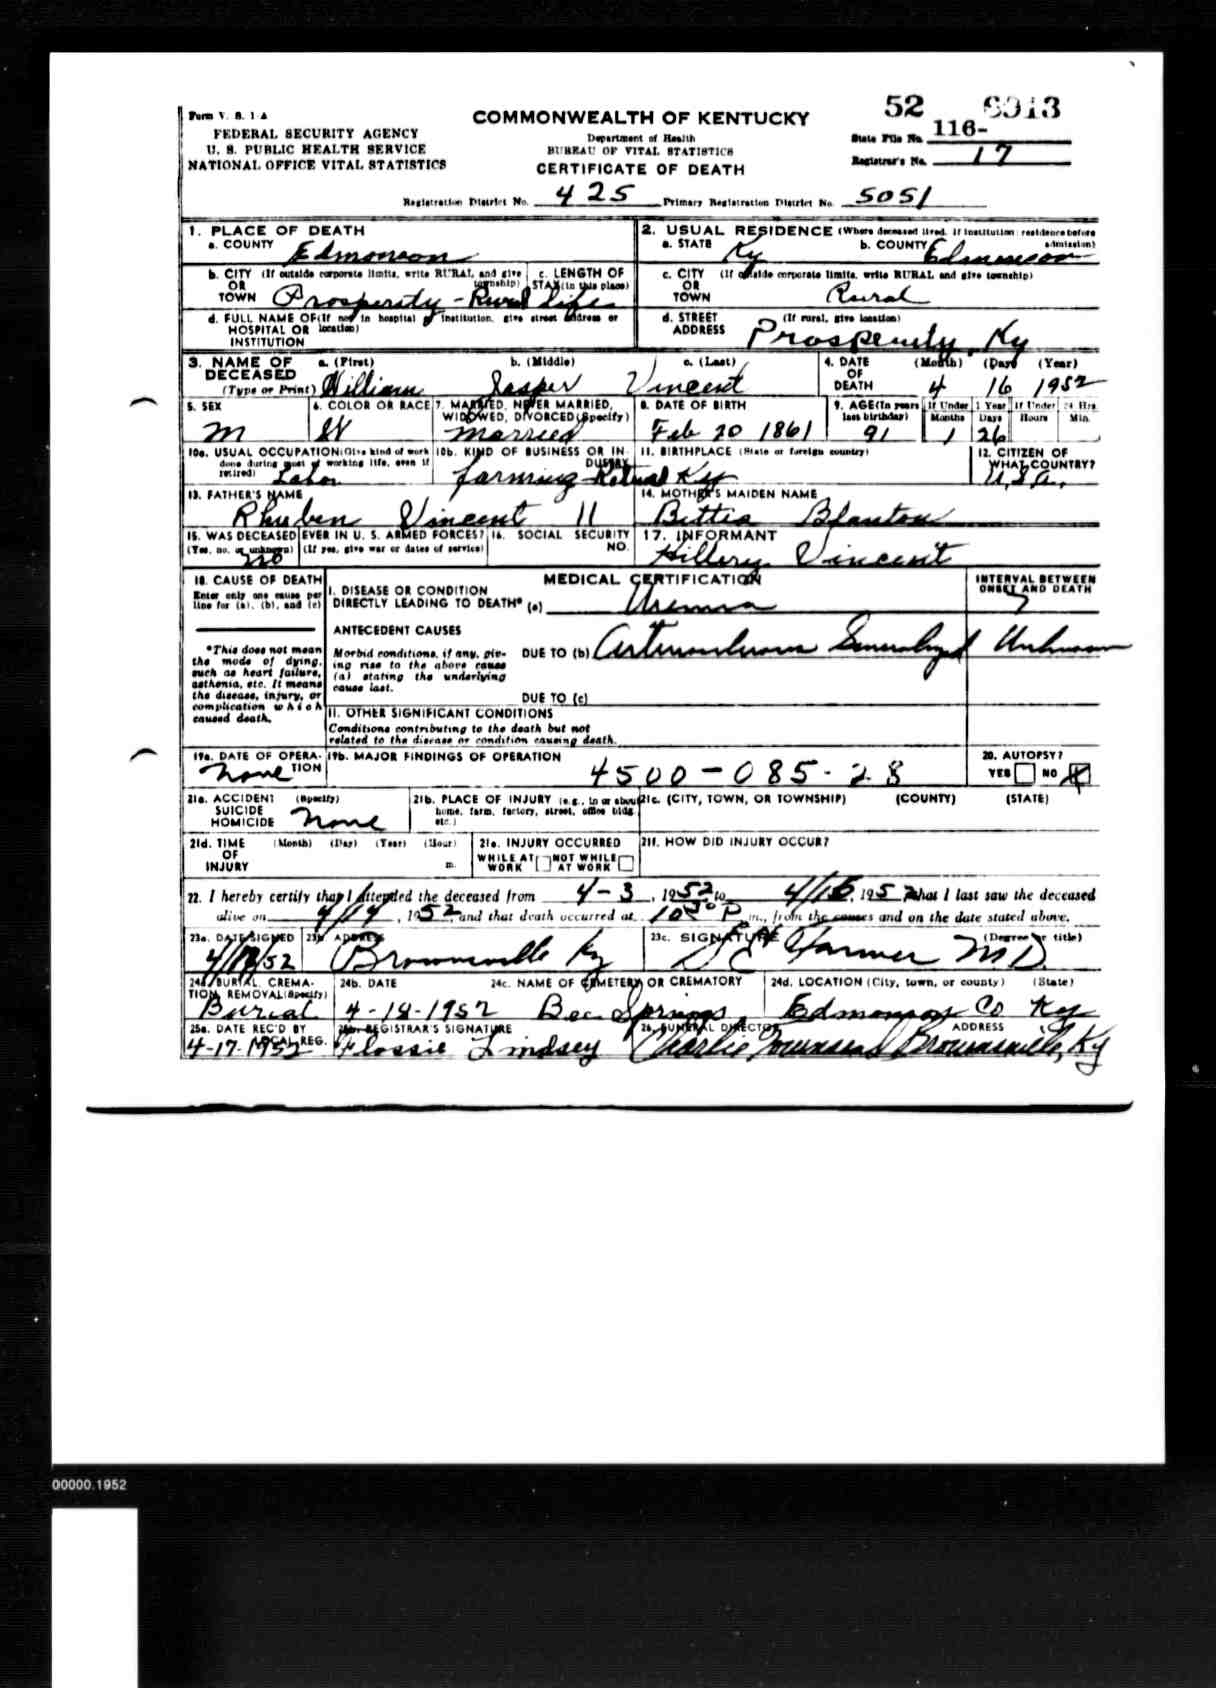 52 6913
Form V. S. 1-A
COMMONWEALTH OF KENTUCKY
FEDERAL SECURITY AGENCY
Department of Health
State File No. 116-
U. S. PUBLIC HEALTH SERVICE
BUREAU OF VITAL STATISTICS
NATIONAL OFFICE VITAL STATISTICS
CERTIFICATE OF DEATH
Registrar's No. 17
Registration District No. 425 Primary Registration District No. 5051
1. PLACE OF DEATH
a. COUNTY Edmonson
2. USUAL RESIDENCE (Where deceased lived. If institution: residence before admission)
a. STATE Ky b. COUNTY Edmonson
b. CITY (If outside corporate limits, write RURAL and give township) OR TOWN Prosperity - Rural
c. LENGTH OF STAY (in this place) Life
c. CITY (If outside corporate limits, write RURAL and give township) OR TOWN Rural
d. FULL NAME OF (If not in hospital or institution, give street address or location) HOSPITAL OR INSTITUTION
d. STREET ADDRESS (If rural, give location) Prosperity, Ky
3. NAME OF DECEASED (Type or Print) a. (First) b. (Middle) c. (Last)
William Jasper Vincent
4. DATE OF DEATH (Month) (Day) (Year)
4 16 1952
5. SEX M
6. COLOR OR RACE W
7. MARRIED, NEVER MARRIED, WIDOWED, DIVORCED (Specify) Married
8. DATE OF BIRTH Feb 20 1861
9. AGE (In years last birthday) 91
If Under 1 Year Months 1 Days 26
If Under 24 Hrs. Hours Min.
10a. USUAL OCCUPATION (Give kind of work done during most of working life, even if retired) Labor
10b. KIND OF BUSINESS OR INDUSTRY farming - Retired
11. BIRTHPLACE (State or foreign country) Ky
12. CITIZEN OF WHAT COUNTRY? U.S.A.
13. FATHER'S NAME Rhuben Vincent
14. MOTHER'S MAIDEN NAME Bettie Blanton
15. WAS DECEASED EVER IN U. S. ARMED FORCES? (Yes, no, or unknown) (If yes, give war or dates of service) no
16. SOCIAL SECURITY NO.
17. INFORMANT Hillery Vincent
18. CAUSE OF DEATH
Enter only one cause per line for (a), (b), and (c)
MEDICAL CERTIFICATION
INTERVAL BETWEEN ONSET AND DEATH
I. DISEASE OR CONDITION DIRECTLY LEADING TO DEATH* (a) Uremia
*This does not mean the mode of dying, such as heart failure, asthenia, etc. It means the disease, injury, or complication which caused death.
ANTECEDENT CAUSES
Morbid conditions, if any, giving rise to the above cause (a) stating the underlying cause last.
DUE TO (b) Generalized Unknown
DUE TO (c)
II. OTHER SIGNIFICANT CONDITIONS
Conditions contributing to the death but not related to the disease or condition causing death.
19a. DATE OF OPERATION None
19b. MAJOR FINDINGS OF OPERATION
4500-085-28
20. AUTOPSY?
YES NO
21a. ACCIDENT (Specify) SUICIDE HOMICIDE None
21b. PLACE OF INJURY (e.g., in or about home, farm, factory, street, office bldg., etc.)
21c. (CITY, TOWN, OR TOWNSHIP) (COUNTY) (STATE)
21d. TIME OF INJURY (Month) (Day) (Year) (Hour) m.
21e. INJURY OCCURRED
WHILE AT WORK NOT WHILE AT WORK
21f. HOW DID INJURY OCCUR?
22. I hereby certify that I attended the deceased from 4-3, 1952 to 4/16, 1952 that I last saw the deceased
alive on 4/14, 1952, and that death occurred at 10 P m., from the causes and on the date stated above.
23a. DATE SIGNED
23b. ADDRESS Brownsville Ky
23c. SIGNATURE (Degree or title) Farmer MD
24a. BURIAL, CREMATION, REMOVAL (Specify) Burial
24b. DATE 4-18-1952
24c. NAME OF CEMETERY OR CREMATORY Bee Springs
24d. LOCATION (City, town, or county) (State) Edmonson Co Ky
25a. DATE REC'D BY LOCAL REG. 4-17-1952
25b. REGISTRAR'S SIGNATURE Flossie Lindsey
26. FUNERAL DIRECTOR ADDRESS Charlie Townsend Brownsville, Ky
00000.1952